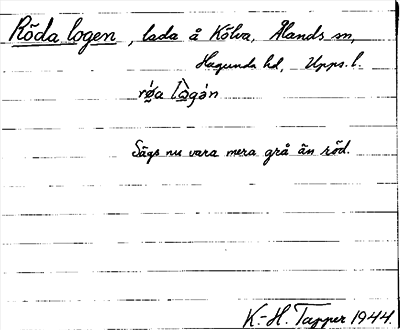 Röda logen, lada å Kölva, Ålands sn,
Hagunda hd, Upps. l.
rø̀a lò̱gə́n
Sägs nu vara mera grå än röd.
K.-H. Tapper 1944.